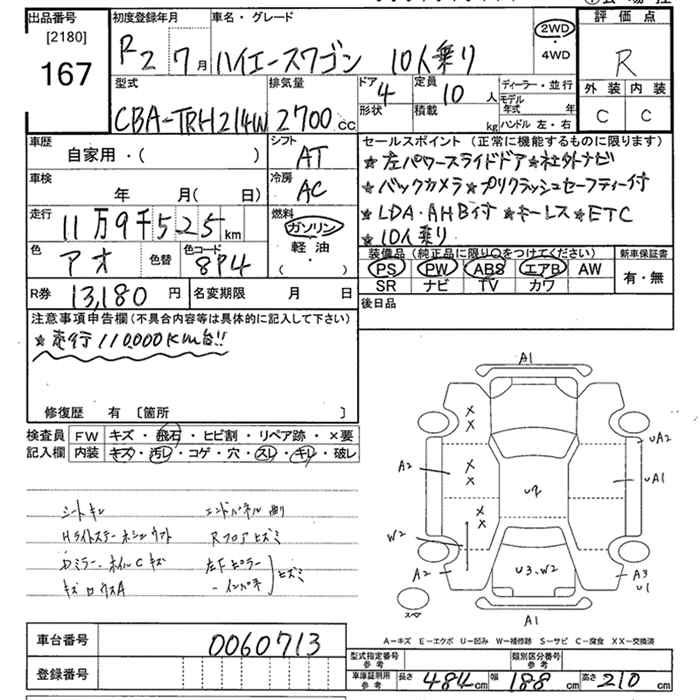 出品番号 初度登録年月 車名・グレード 2WD 4WD 評価点
[2180] 167 R2 7月 ハイエースワゴン 10人乗り R
型式 CBA-TRH214W 排気量 2700cc ドア 4 形状 定員 10人 積載 kg ディーラー・並行 モデル年式 年 ハンドル 左・右 外装 C 内装 C
車歴 自家用・( ) シフト AT
車検 年 月(日) 冷房 AC
走行 11万9千525km 燃料 ガソリン 軽油・( )
色 アオ 色替 色コード 8P4
R券 13,180円 名変期限 月 日
セールスポイント(正常に機能するものに限ります)
★左パワースライドドア★社外ナビ
★バックカメラ★プリクラッシュセーフティー付
★LDA・AHB付★キーレス★ETC
★10人乗り
装備品(純正品に限り○をつけてください) 新車保証書
PS PW ABS エアB AW 有・無
SR ナビ TV カワ
後日品
注意事項申告欄(不具合内容等は具体的に記入して下さい)
★走行110,000KM台!!
修復歴 有 〔箇所 〕
検査員 FW キズ・飛石・ヒビ割・リペア跡・×要
記入欄 内装 キズ・汚レ・コゲ・穴・スレ・キレ・破レ
シートキレ エンドパネル
Hライトステー
Rフロアヒズミ
Dミラー、ホイルCキズ 左Fピラー
キズ A インパネ ヒズミ
A1
X X
X X
X X
A2
W2
A2
U2
U3.W2
UA2
UA1
A3
U1
スペア
A1
A－キズ E－エクボ U－凹み W－補修跡 S－サビ C－腐食 XX－交換済
車台番号 0060713
登録番号
型式指定番号 参考 類別区分番号 参考
車庫証明用 参考 長さ 484cm 幅 188cm 高さ 210cm